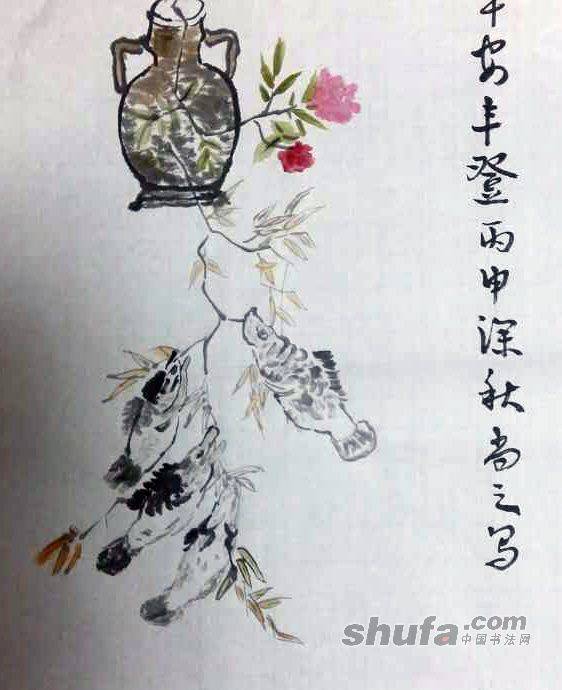 平安丰登丙申深秋尚之写
shufa.com
中国书法网